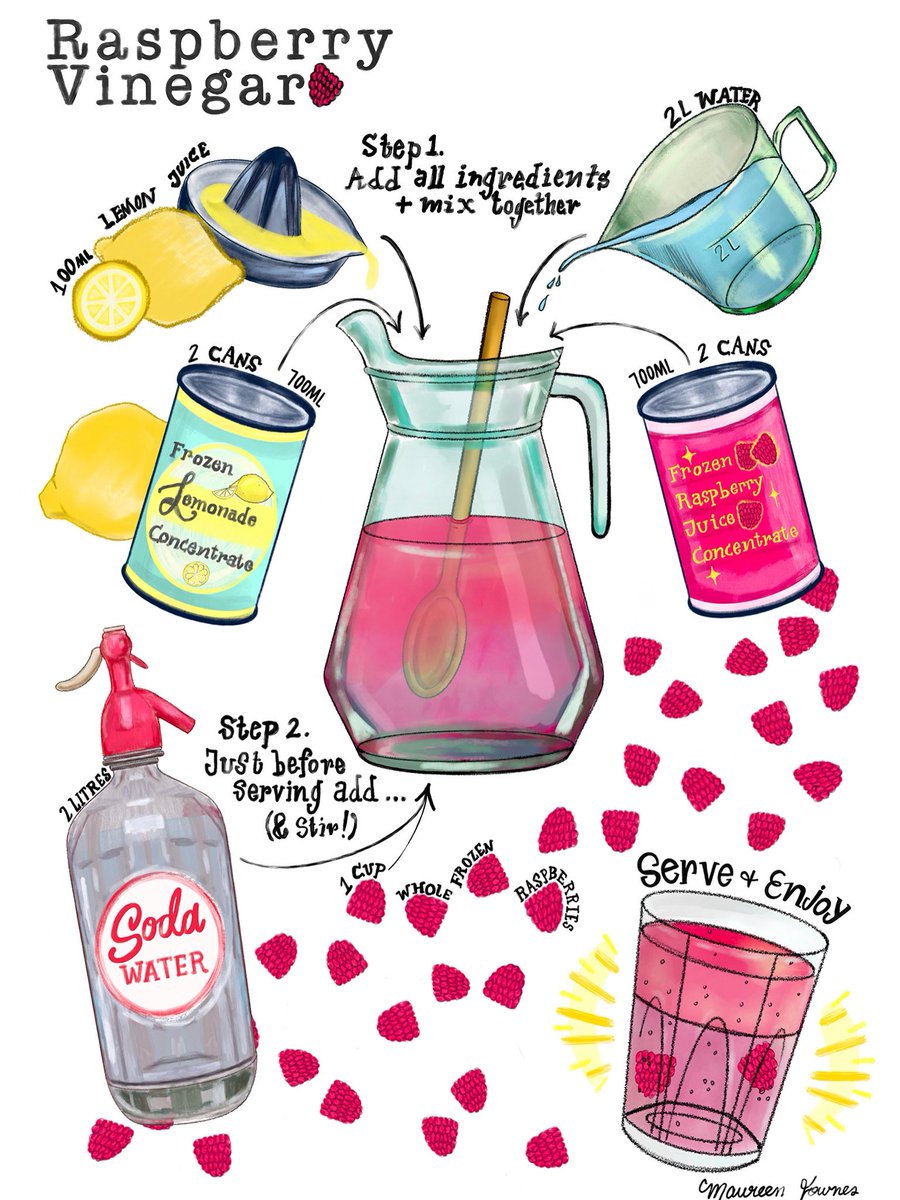 Raspberry
Vinegar
100ML LEMON JUICE
Step 1.
Add all ingredients
+ mix together
2L WATER
2L
2 CANS
700ML
Frozen
Lemonade
Concentrate
700ML
2 CANS
Frozen
Raspberry
Juice
Concentrate
2 LITRES
Soda
WATER
Step 2.
Just before
serving add...
(& Stir!)
1 CUP WHOLE FROZEN RASPBERRIES
Serve + Enjoy
Maureen Townes